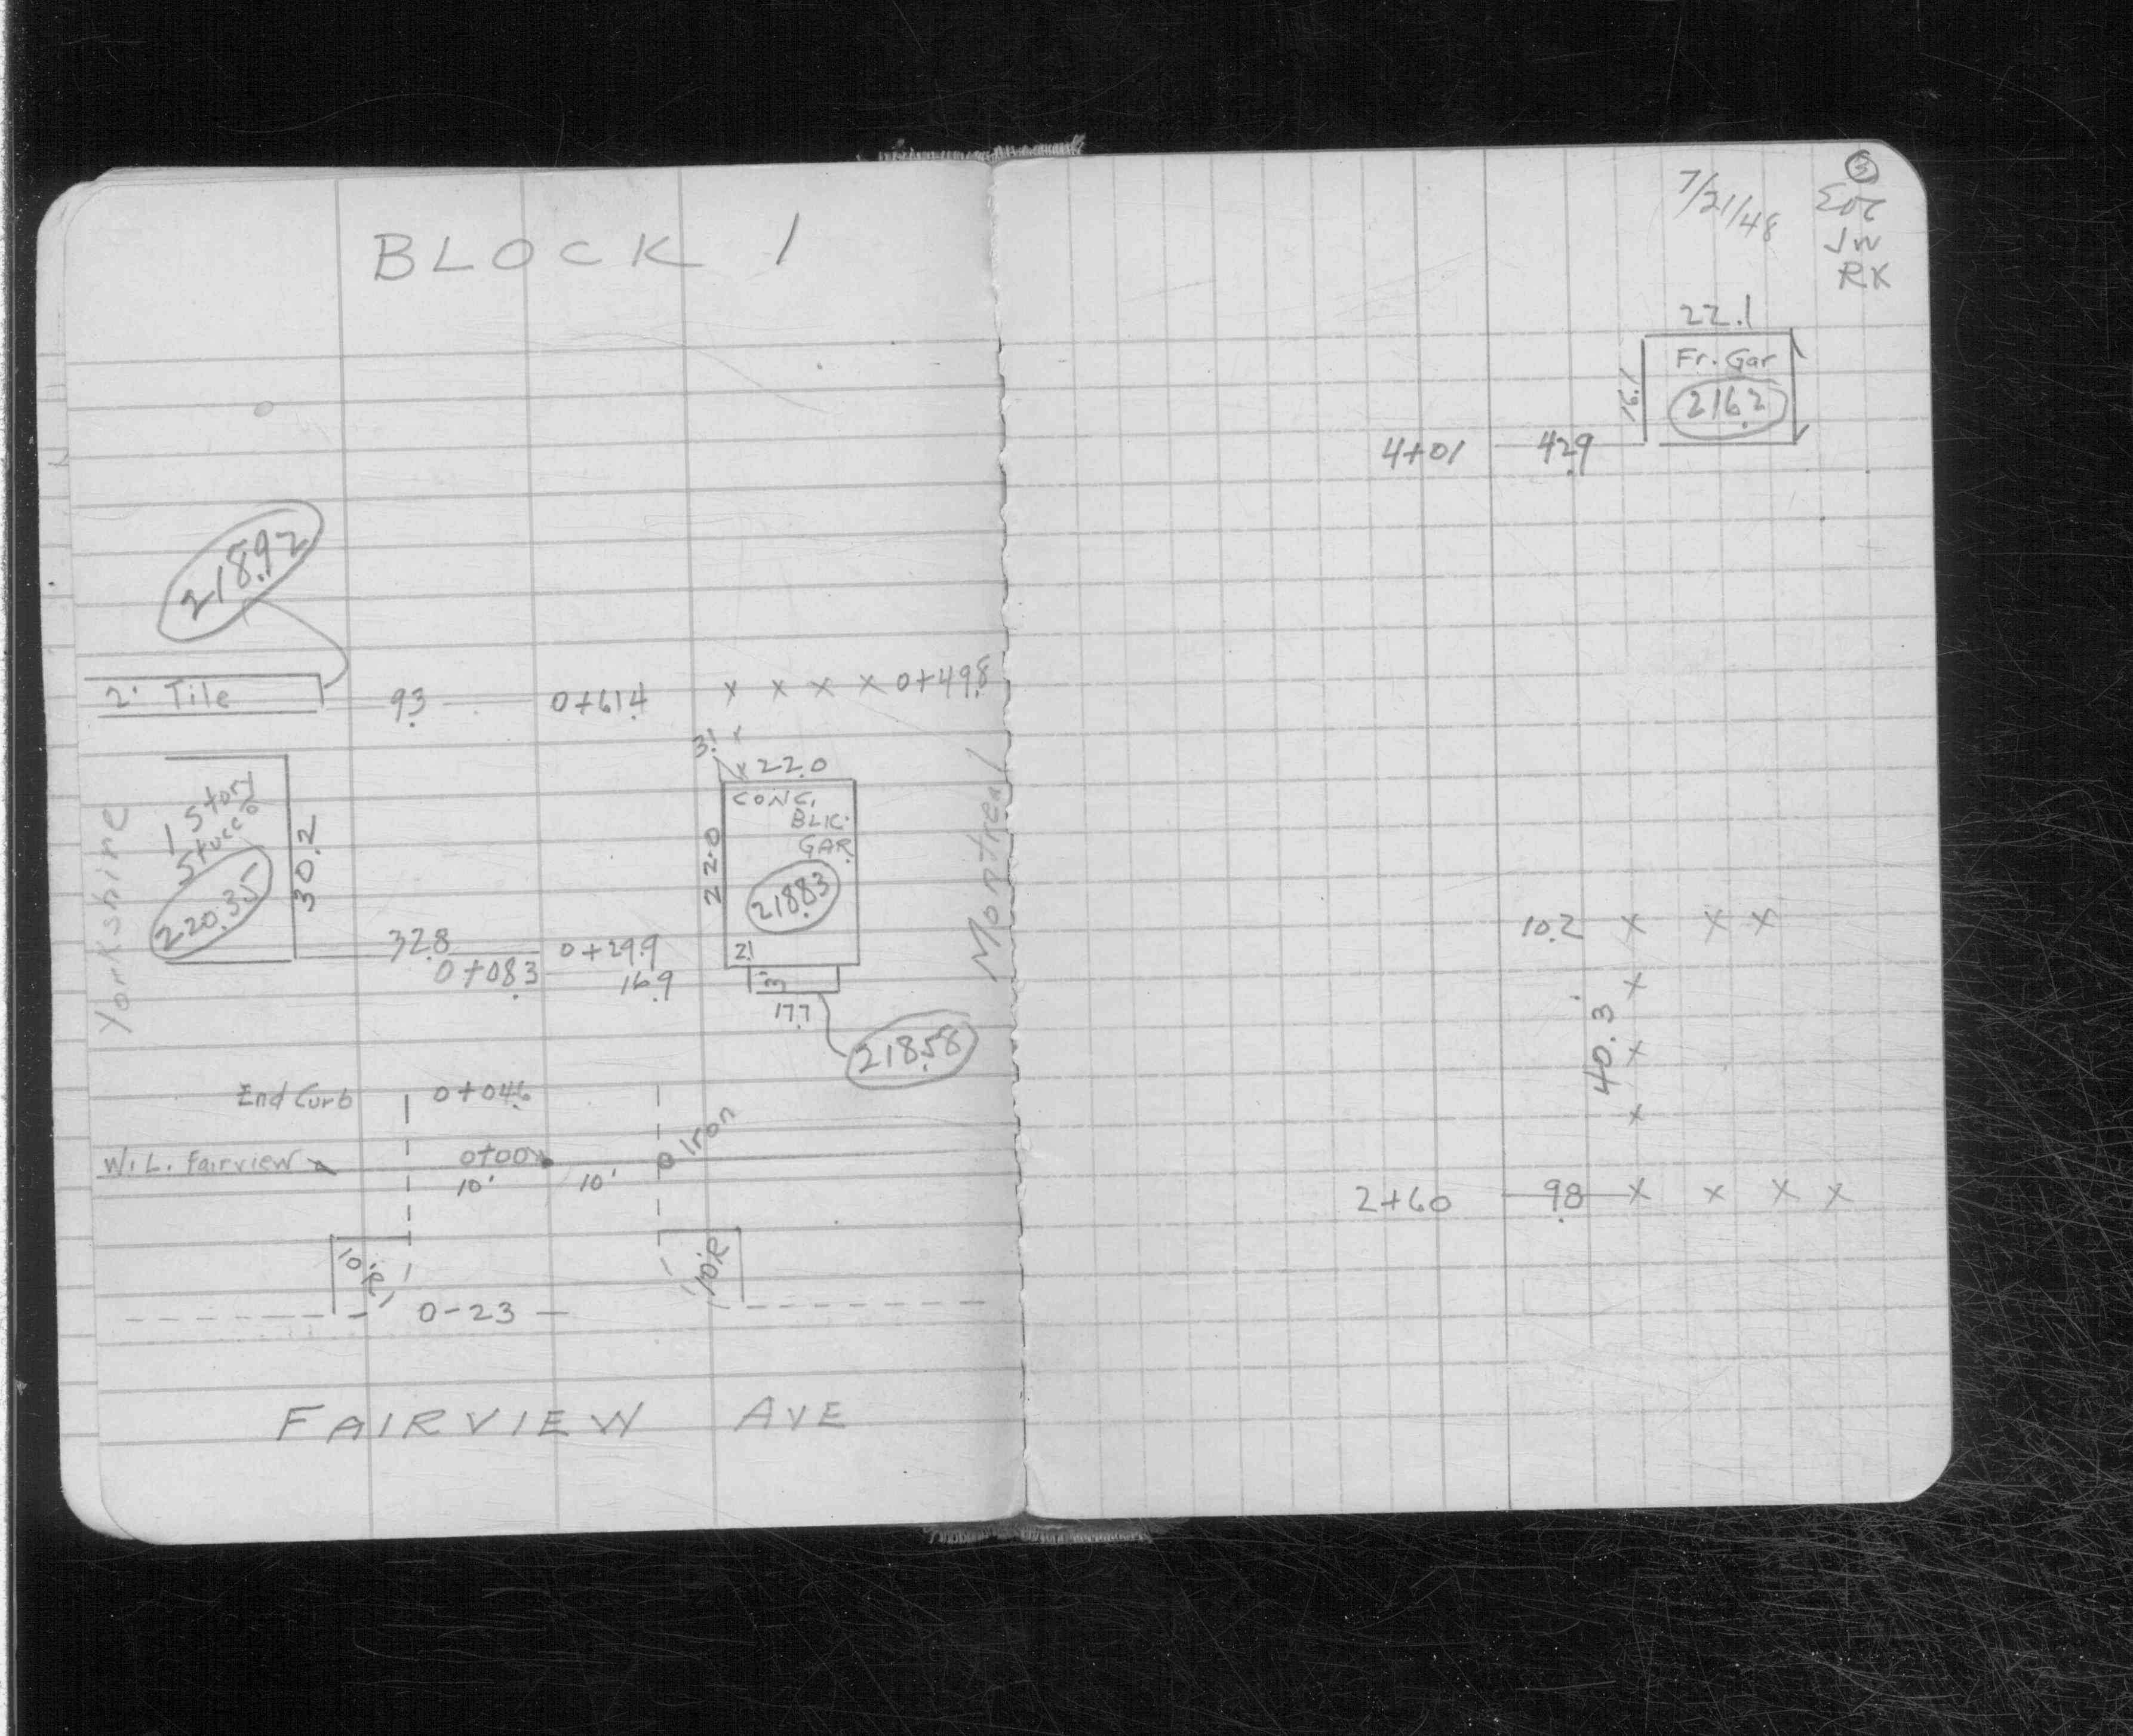 BLOCK 1
218.92
2' Tile
9.3
0+61.4
x x x x 0+49.8
3.1
x 22.0
CONC.
BLK.
GAR.
22.0
218.83
2.1
3
17.7
218.58
Yorkshire
1 Story
Stucco
220.35
30.2
32.8
0+29.9
0+08.3
16.9
Montreal
End Curb
0+04.6
W.L. Fairview
0+00
10'
10'
Iron
10'R
10'R
0-23
FAIRVIEW AVE
3
7/21/48
JW
RK
22.1
Fr. Gar
16.1
216.2
4+01
42.9
10.2 x x x
x
40.3
x
x
2+60
9.8 x x x x